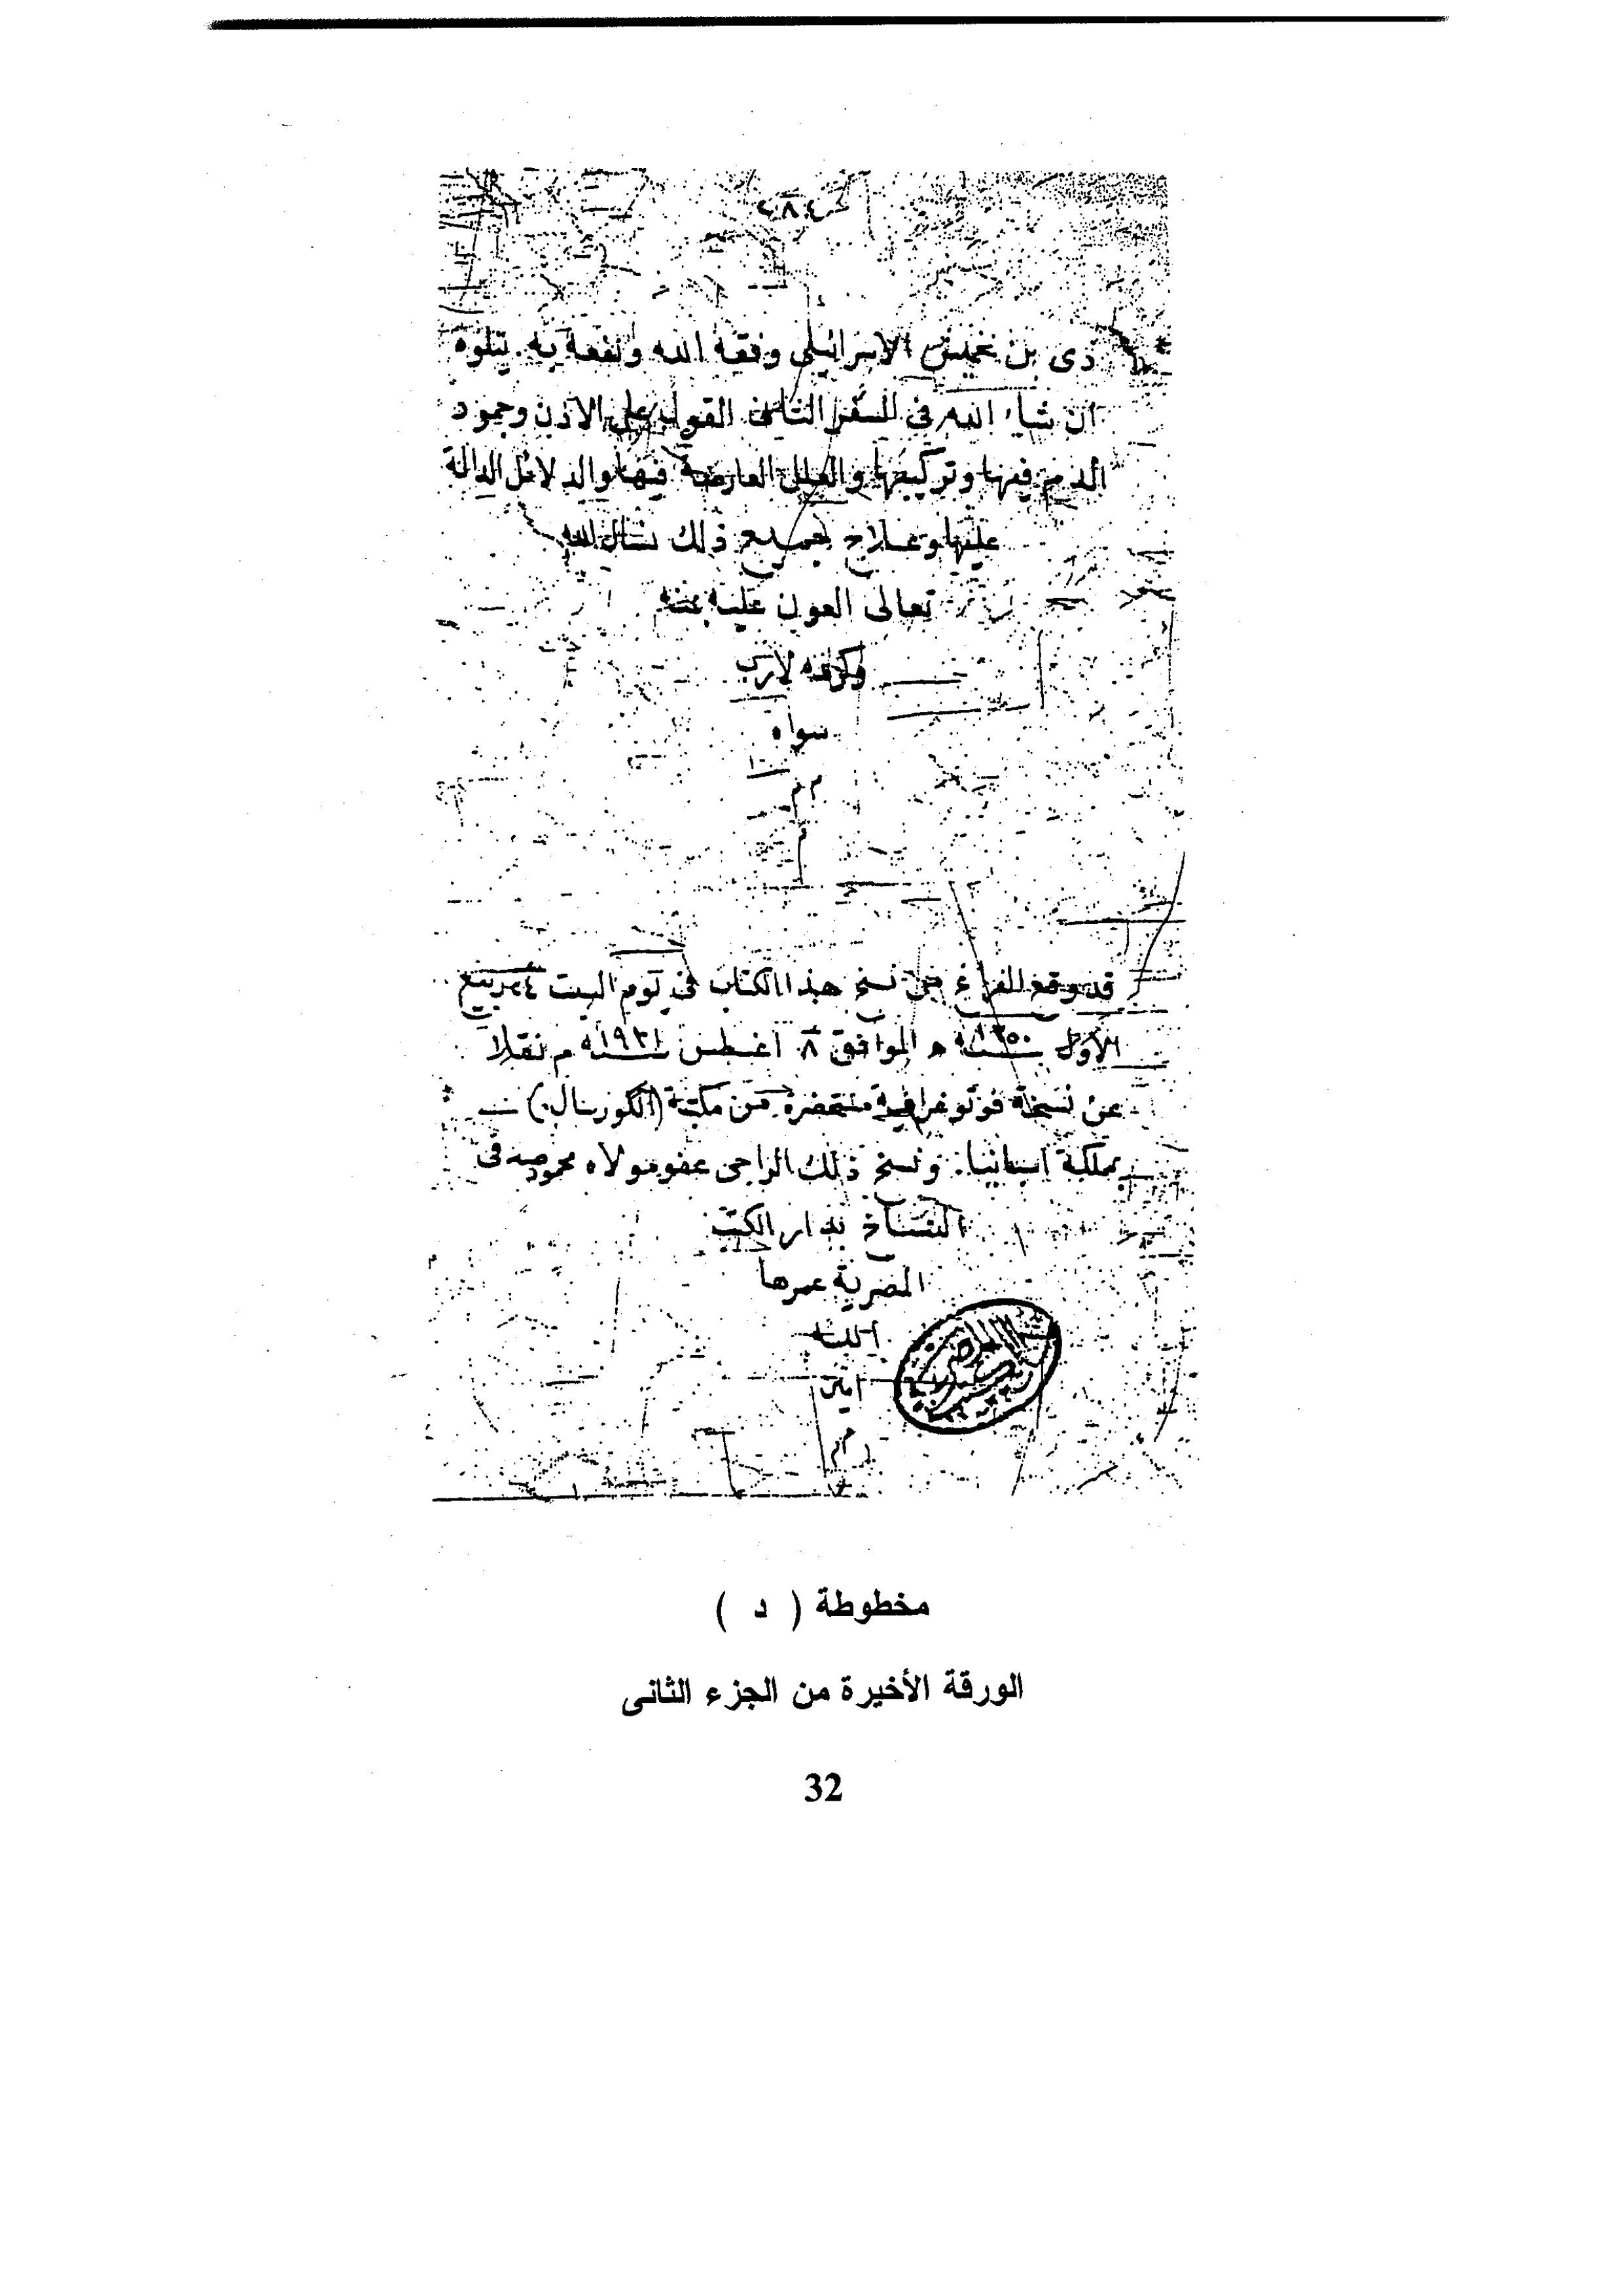 ذى بن نخميش الإسرائيلى وفقه الله ونفعه به. يتلوه
ان شاء الله فى السفر الثالث القول على الاذن وجمود
الدم فيها وتركيبها والعلل العارضة فيها والدلائل الدالة
عليها وعلاج جميع ذلك نسأل الله
تعالى العون عليه بمنه
وكرمه لا رب
سواه
م م
م
قد وقع الفراغ من نسخ هذا الكتاب فى يوم السبت ٢٤ ربيع
الأول سنة ١٣٥٠ ه الموافق ٨ أغسطس سنة ١٩٣١ م نقلا
عن نسخة فوتوغرافية من مكتبة (الكوريال)
بمملكة اسبانيا. ونسخ ذلك الراجى عفو مولاه محمود صدقى
النساخ بدار الكتب
المصرية عمرها
الله
آمين
مخطوطة ( د )
الورقة الأخيرة من الجزء الثانى
32